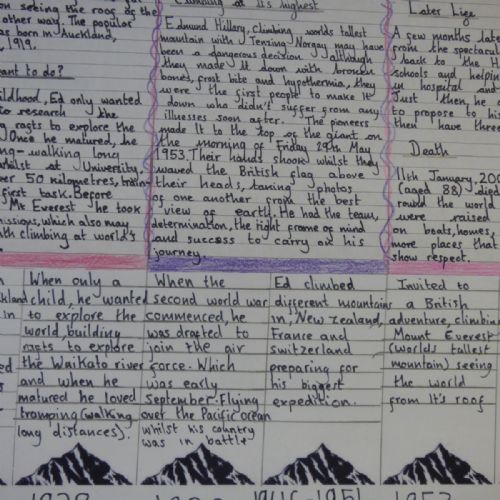 on seeing the roof of the
other way. The popular
as born in Auckland,
1919.
ant to do?
ildhood, Ed only wanted
to research the
g rasts to explore the
Once he matured, he
ng-walking long
whilst at University,
er 50 kilometres, train-
first task. Before
Mt Everest he took
missions, which also may
th climbing at world's
Climbing at its highest
Edmund Hillary, climbing worlds tallest
mountain with Tenzing Norgay may have
been a dangerous decision although
they made it down with broken
bones, frost bite and hypothermia, they
were the first people to make it
down who didn't suffer from any
illnesses soon after. The pioneers
made it to the top of the giant on
the morning of Friday 29th May
1953. Their hands shook whilst they
waved the British flag above
their heads, taking photos
of one another from the best
view of earth. He had the team,
determination, the right frame of mind
and success to carry on his
journey.
Later Life
A few months late
from the spectacul
back to the H
schools and helpin
in hospital and
Just then, he
to propose to his
then have three
Death
11th January, 200
(aged 88) died
round the world
were raised
on boats, homes,
more places that
show respect.
When only a
child, he wanted
to explore the
world, building
rasts to explore
the Waikato river
and when he
matured he loved
tramping (walking
long distances).
When the
second world war
commenced, he
was drafted to
join the air
force. Which
was early
september. Flying
over the Pacific ocean
whilst his country
was in battle
Ed climbed
different mountains
in, New zealand,
France and
switzerland
preparing for
his biggest
expedition.
Invited to
a British
adventure, climbing
Mount Everest
(worlds tallest
mountain) seeing
the world
from it's roof